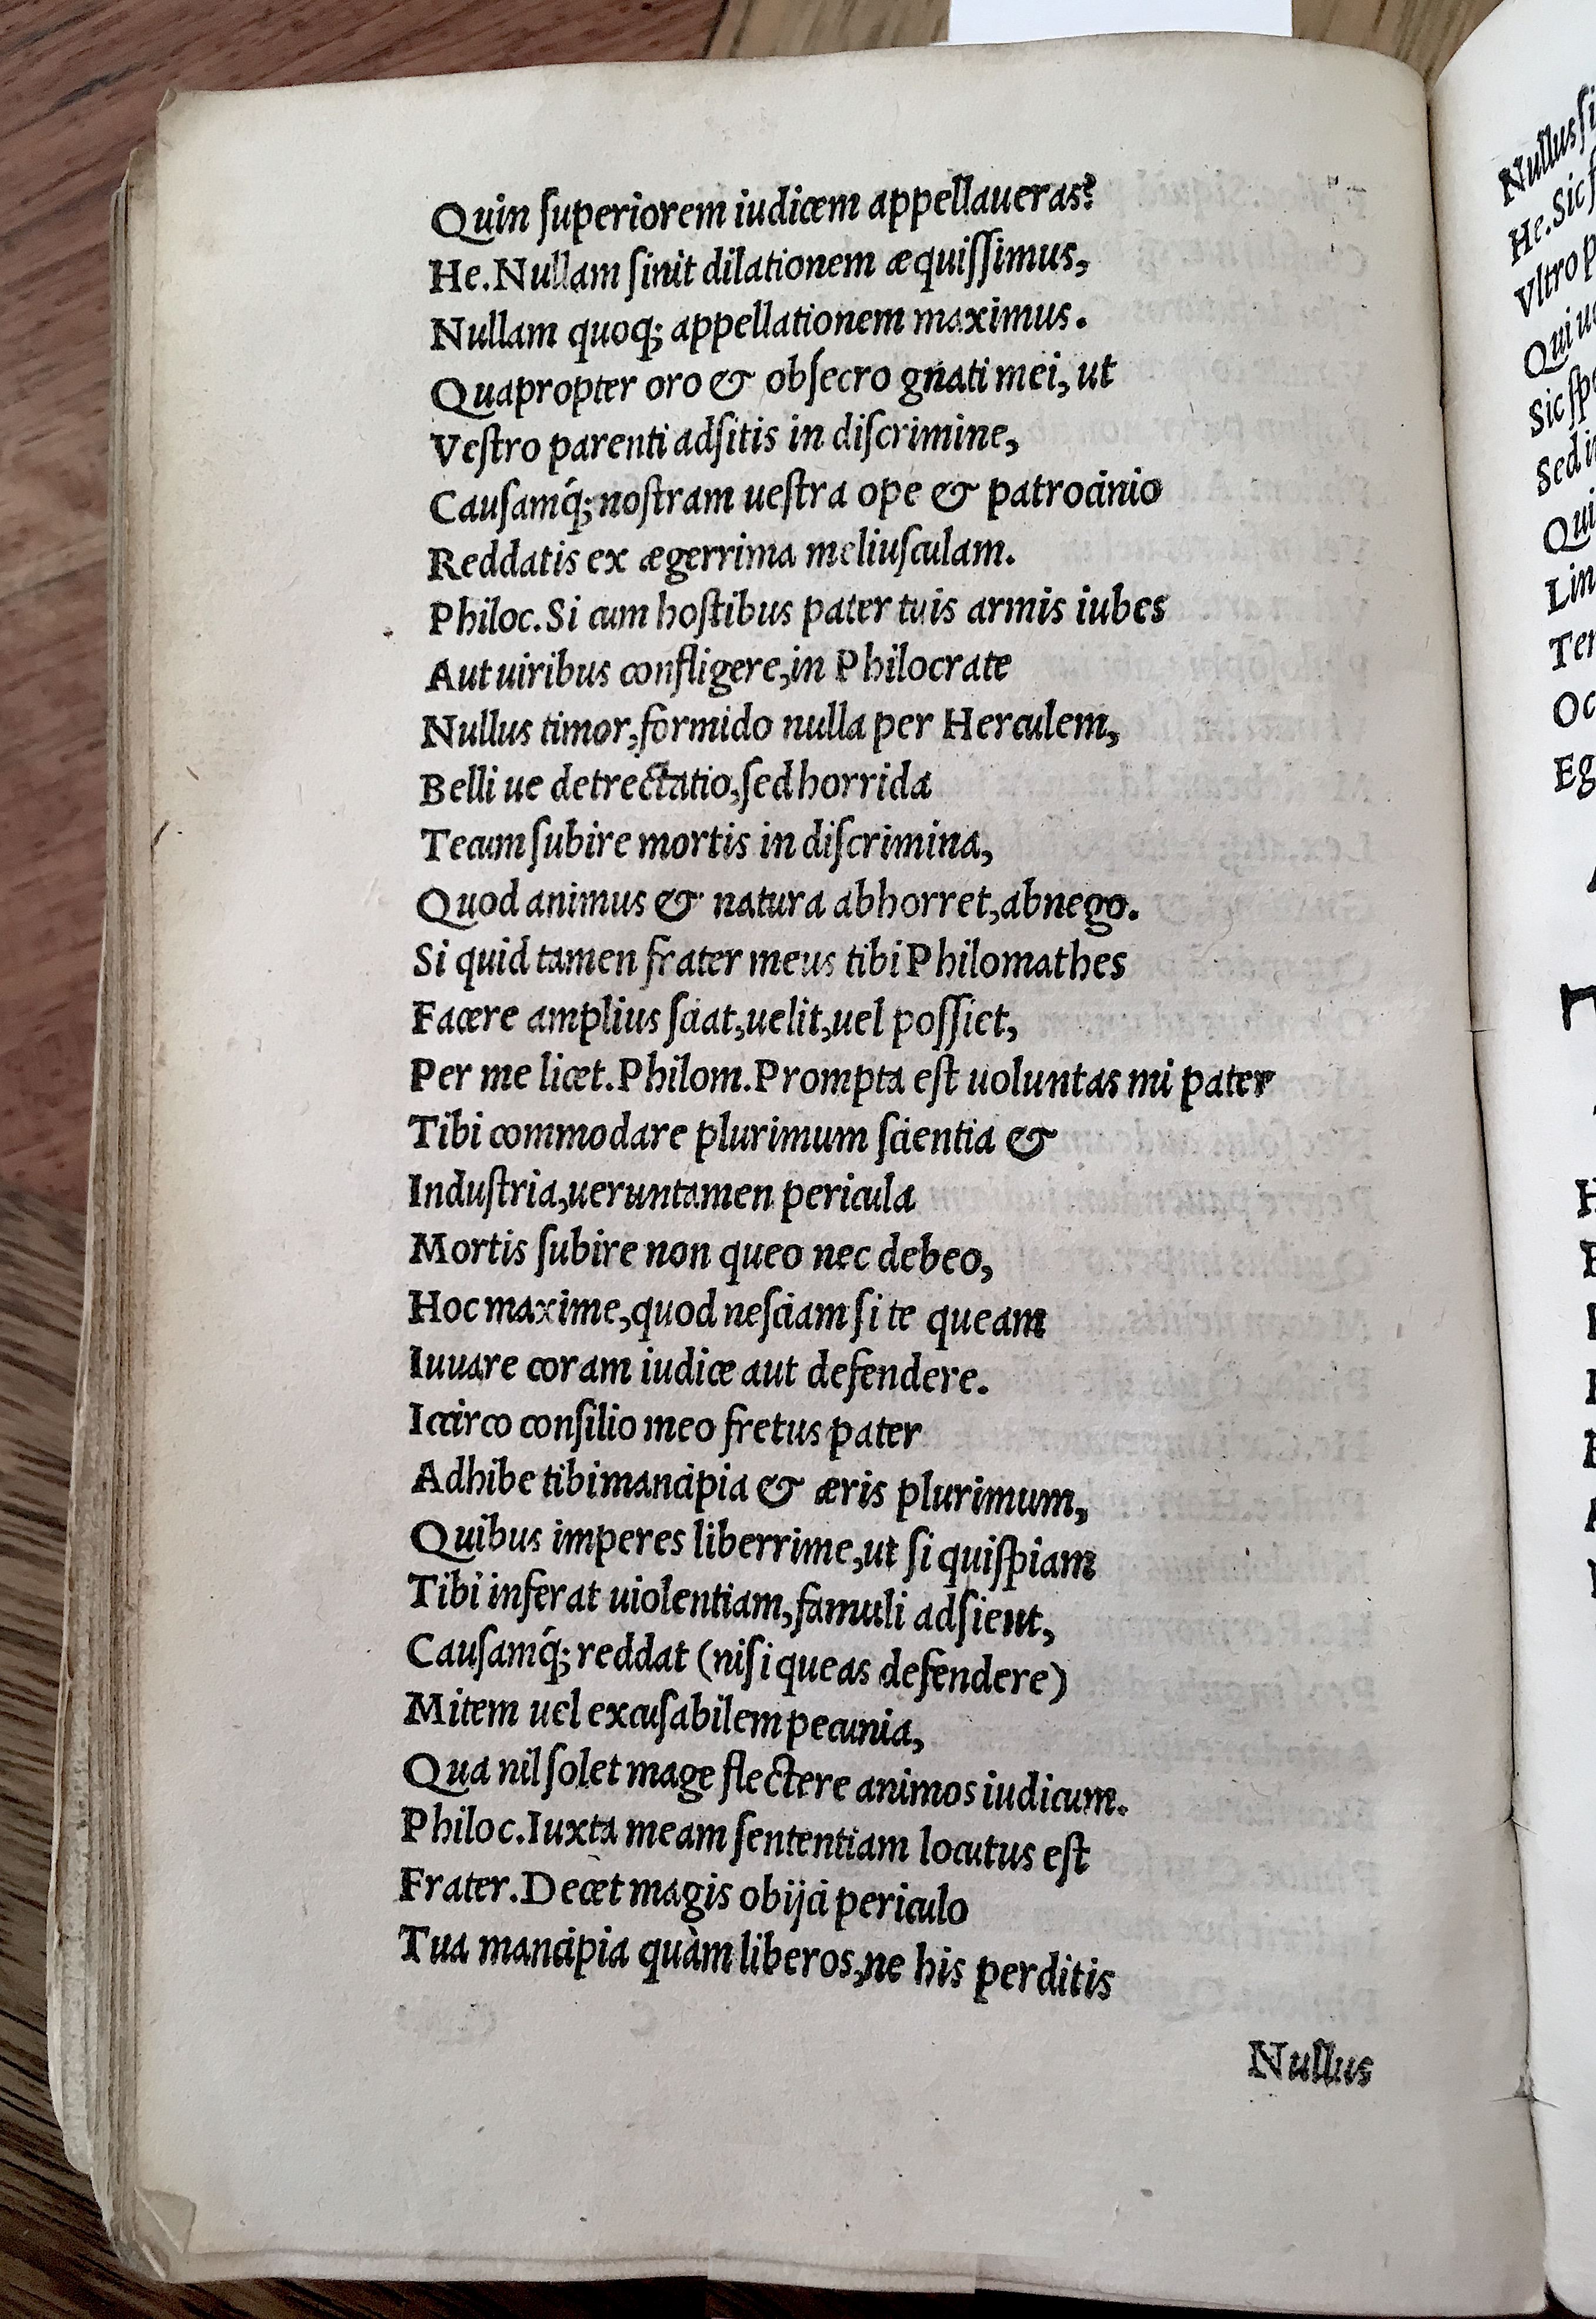 Quin ſuperiorem iudicem appellaueras?
He. Nullam ſinit dilationem æquiſſimus,
Nullam quoq; appellationem maximus.
Quapropter oro & obſecro gnati mei, ut
Veſtro parenti adſitis in diſcrimine,
Cauſamq́; noſtram ueſtra ope & patrocinio
Reddatis ex ægerrima meliuſculam.
Philoc. Si cum hoſtibus pater tuis armis iubes
Aut uiribus confligere, in Philocrate
Nullus timor, formido nulla per Herculem,
Belli ue detrectatio, ſed horrida
Tecum ſubire mortis in diſcrimina,
Quod animus & natura abhorret, abnego.
Si quid tamen frater meus tibi Philomathes
Facere amplius ſciat, uelit, uel poſſiet,
Per me licet. Philom. Prompta eſt uoluntas mi pater
Tibi commodare plurimum ſcientia &
Induſtria, ueruntamen pericula
Mortis ſubire non queo nec debeo,
Hoc maxime, quod neſciam ſi te queam
Iuuare coram iudice aut defendere.
Iccirco conſilio meo fretus pater
Adhibe tibi mancipia & æris plurimum,
Quibus imperes liberrime, ut ſi quiſpiam
Tibi inferat uiolentiam, famuli adſient,
Cauſamq́; reddat (niſi queas defendere)
Mitem uel excuſabilem pecunia,
Qua nil ſolet mage flectere animos iudicum.
Philoc. Iuxta meam ſententiam locutus eſt
Frater. Decet magis obijci periculo
Tua mancipia quàm liberos, ne his perditis
Nullus
Nullus ſi
He. Sic
Vltro p
Qui u
Sic ſpe
Sed i
Qui
Lin
Ter
Oc
Eg